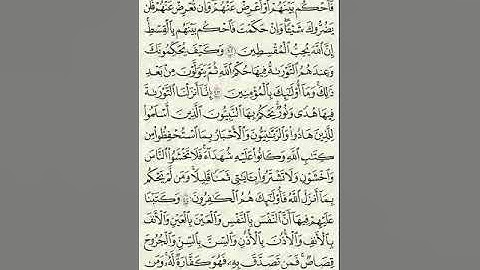 فَاحْكُم بَيْنَهُمْ أَوْ أَعْرِضْ عَنْهُمْ وَإِن تُعْرِضْ عَنْهُمْ فَلَن
يَضُرُّوكَ شَيْئًا وَإِنْ حَكَمْتَ فَاحْكُم بَيْنَهُم بِالْقِسْطِ
إِنَّ اللَّهَ يُحِبُّ الْمُقْسِطِينَ ٤٢ وَكَيْفَ يُحَكِّمُونَكَ
وَعِندَهُمُ التَّوْرَىٰةُ فِيهَا حُكْمُ اللَّهِ ثُمَّ يَتَوَلَّوْنَ مِنۢ بَعْدِ
ذَٰلِكَ وَمَا أُولَٰئِكَ بِالْمُؤْمِنِينَ ٤٣ إِنَّا أَنزَلْنَا التَّوْرَىٰةَ
فِيهَا هُدًى وَنُورٌ يَحْكُمُ بِهَا النَّبِيُّونَ الَّذِينَ أَسْلَمُوا
لِلَّذِينَ هَادُوا وَالرَّبَّٰنِيُّونَ وَالْأَحْبَارُ بِمَا اسْتُحْفِظُوا مِن
كِتَٰبِ اللَّهِ وَكَانُوا عَلَيْهِ شُهَدَاءَ فَلَا تَخْشَوُا النَّاسَ
وَاخْشَوْنِ وَلَا تَشْتَرُوا بِـَٔايَٰتِي ثَمَنًا قَلِيلًا وَمَن لَّمْ يَحْكُم
بِمَا أَنزَلَ اللَّهُ فَأُولَٰئِكَ هُمُ الْكَٰفِرُونَ ٤٤ وَكَتَبْنَا
عَلَيْهِمْ فِيهَا أَنَّ النَّفْسَ بِالنَّفْسِ وَالْعَيْنَ بِالْعَيْنِ وَالْأَنفَ
بِالْأَنفِ وَالْأُذُنَ بِالْأُذُنِ وَالسِّنَّ بِالسِّنِّ وَالْجُرُوحَ
قِصَاصٌ فَمَن تَصَدَّقَ بِهِ فَهُوَ كَفَّارَةٌ لَّهُ وَمَن